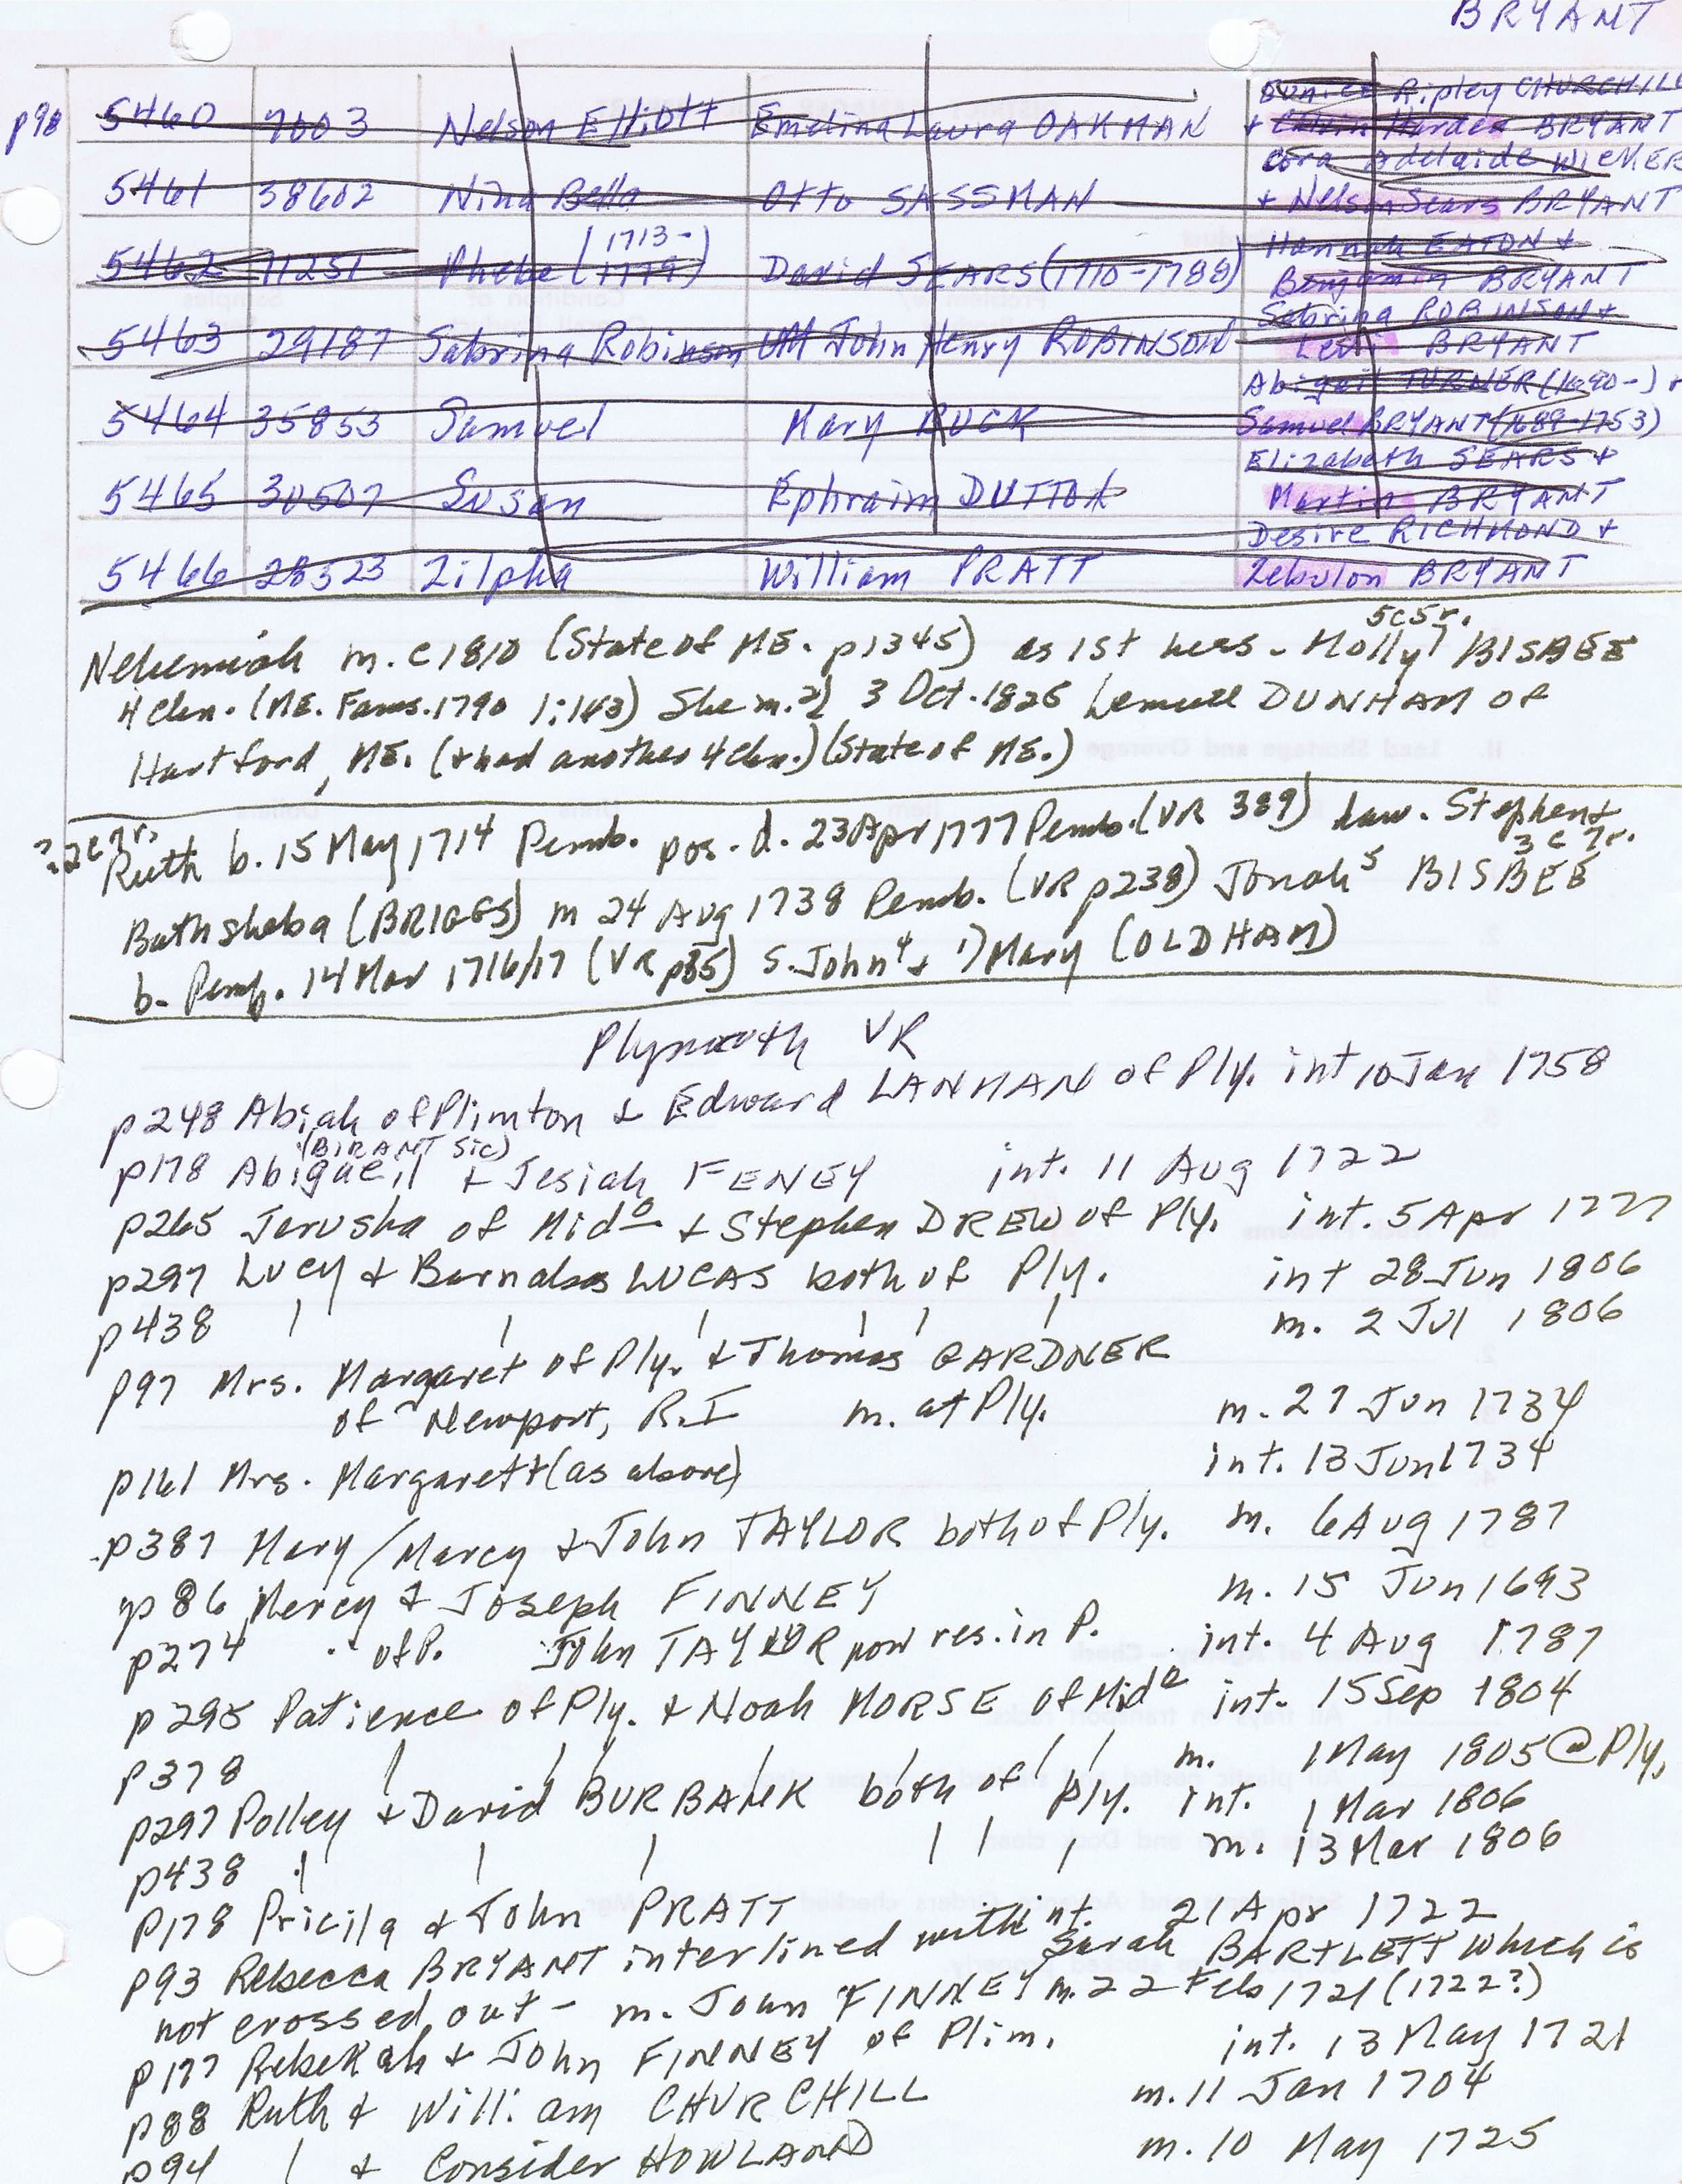 BRYANT
Eunice Ripley CHURCHILL
p98 5460 7603 Nelson Elliott Emelina Laura OAKMAN + Calvin Harden BRYANT
Cora Adelaide WICMER
5461 38602 Nina Bella Otto SASSMAN + Nelson Sears BRYANT
(1713-
Hannah EATON +
5462 11251 Phebe 1779) David SEARS (1710-1788) Benjamin BRYANT
Sabrina ROBINSON +
5463 29187 Sabrina Robinson John Henry ROBINSON Levi BRYANT
Abigail TURNER (1690-) +
5464 35853 Samuel Mary BUCK Samuel BRYANT (1689-1753)
Elizabeth SEARS +
5465 30507 Susan Ephraim DUTTON Martin BRYANT
Desire RICHMOND +
5466 28523 Zilpha William PRATT Zebulon BRYANT
5c5r.
Nehemiah m. c1810 (State of ME. p1345) as 1st hus. - Molly7 BISBEE
4 chn. (ME. Fams. 1790 1:143) She m. 2) 3 Oct. 1826 Lemuel DUNHAM of
Hartford, ME. (+ had another 4 chn.) (State of ME.)
?2c7r.
Ruth b. 15 May 1714 Pemb. pos. d. 23 Apr 1777 Pemb. (VR 389) dau. Stephen +
3c7r.
Bathsheba (BRIGGS) m 24 Aug 1738 Pemb. (VR p238) Jonah5 BISBEE
b. Pemb. 14 Mar 1716/17 (VR p35) s. John4 + 1) Mary (OLDHAM)
Plymouth VR
p248 Abiah of Plimton & Edward LANMAN of Ply. int 10 Jan 1758
(BIRANT sic)
p178 Abigaeil & Jesiah FENEY int. 11 Aug 1722
p265 Jerusha of Mido + Stephen DREW of Ply. int. 5 Apr 1777
p297 Lucy & Barnabas LUCAS both of Ply. int 28 Jun 1806
p438 | | | | | | m. 2 Jul 1806
p97 Mrs. Margaret of Ply. & Thomas GARDNER
of Newport, R.I m. at Ply. m. 27 Jun 1734
p161 Mrs. Margarett (as above) int. 13 Jun 1734
p387 Mary/Marcy & John TAYLOR both of Ply. m. 6 Aug 1787
p86 Mercy & Joseph FINNEY m. 15 Jun 1693
p274 " of P. John TAYLOR now res. in P. int. 4 Aug 1787
p295 Patience of Ply. & Noah MORSE of Mido int. 15 Sep 1804
p378 | | | | | | m. 1 May 1805 @ Ply.
p297 Polley & David BURBANK both of Ply. int. 1 Mar 1806
p438 | | | | | | m. 13 Mar 1806
p178 Pricila & John PRATT int. 21 Apr 1722
p93 Rebecca BRYANT interlined with Sarah BARTLETT which is
not crossed out - m. John FINNEY m. 22 Feb 1721 (1722?)
p177 Rebekah & John FINNEY of Plim. int. 13 May 1721
p88 Ruth & William CHURCHILL m. 11 Jan 1704
p94 | & Consider HOWLAND m. 10 May 1725